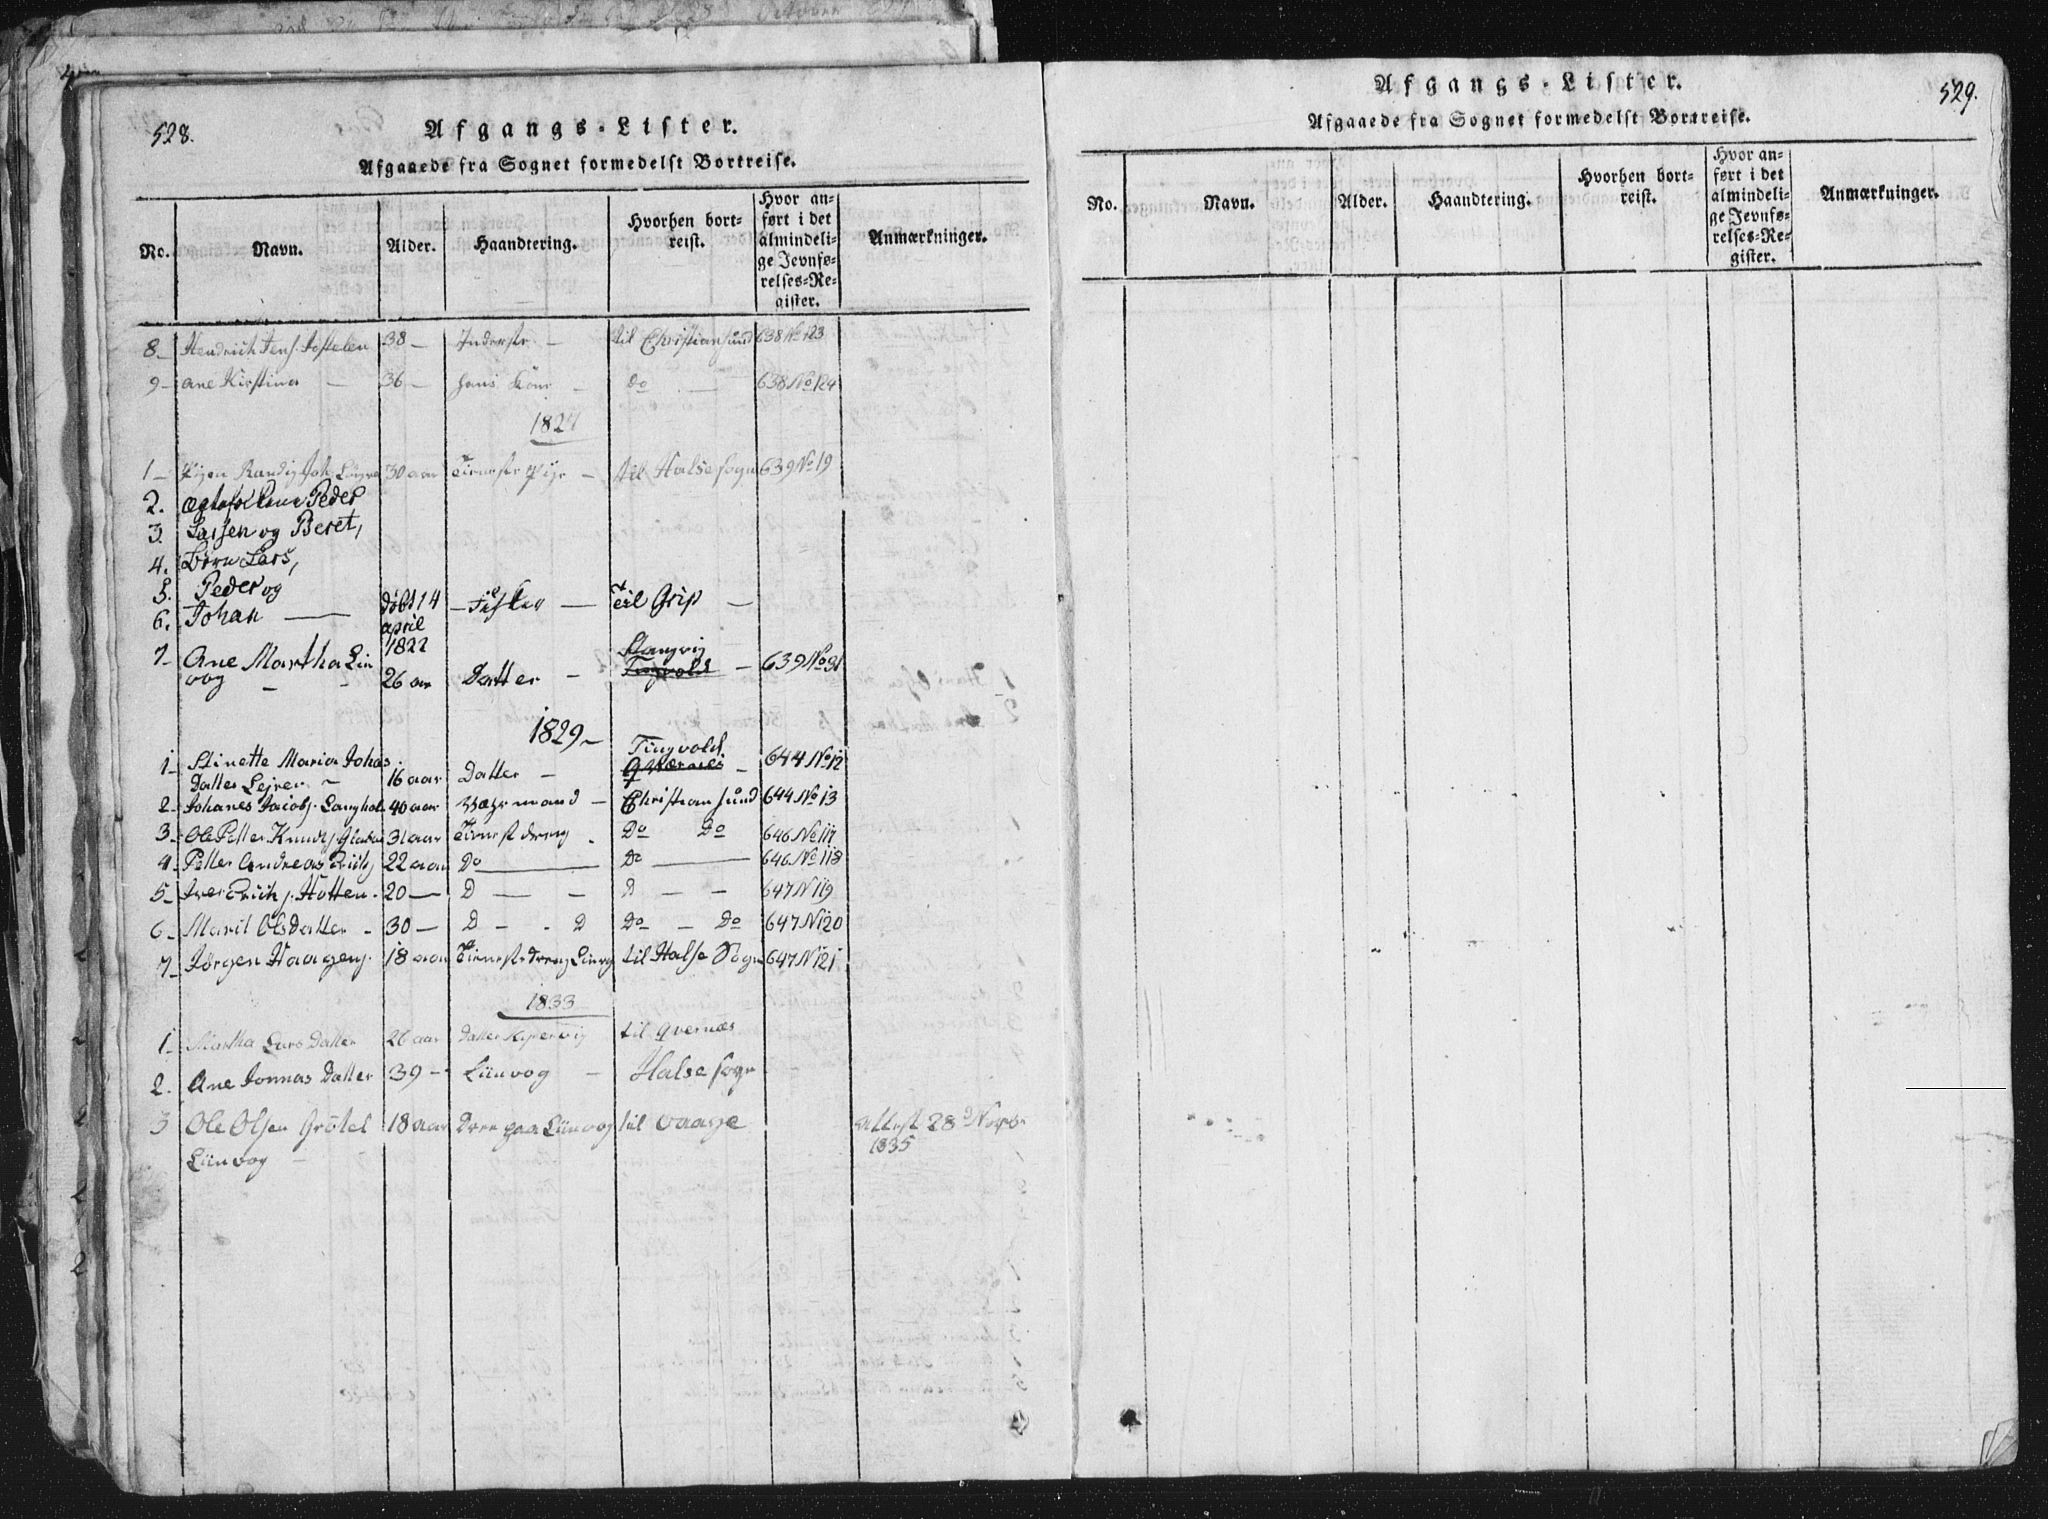 528.
Afgangs-Lister.
Afgaaede fra Sognet formedelst Bortreise.
No. Navn. Alder. Haandtering. Hvorhen bortreist. Hvor anført i det almindelige Jevnførelses-Register. Anmærkninger.
8 Hendrich Jens. 38 — Inderste — til Christiansund 638 No 123
9 Ane Kirstina — 36 — hans Kone — do — 638 No 124
1827
1 — Pigen Randi Joh. 30 aar Tieneste Pige — til Halse sogn 639 No 19
2. Peder
3. Larsen og Beret,
4. Børn Lars,
5. Peder og
6. Johan — døbt 14 april 1822 — Fisker — Til Grip —
7 — Ane Martha Linvog — 26 aar Datter — Stangvig Tingvold — 639 No 31
1829 —
1 — Stinette Maria Johas Datter Lejren — 16 aar Datter — Tingvold Qvernes — 644 No 12
2 — Johanes Jacobs. Langhol 40 aar — Christiansund 644 No 13
3 — Ole Petter Knuds. 31 aar Tieneste dreng — Do Do 646 No 117
4 — Petter Andreas 22 aar Do — Do — 646 No 118
5 — Hotten. 20 — D — — D — — 647 N 119
6 — Marit Olsdatter — 30 — D — — D Do — Do 647 N 120
7 — Jørgen Haagens. 18 aar Tieneste dreng til Halse Sogn 647 N 121
1833
1 — Martha Lars Datter 26 aar Datter til Qvernæs
2. Ane Jonnas Datter 39 — Liinvog — Halse sogn
3 Ole Olsen Grötel 18 aar paa Liinvog til Vaage attest 28d Novbr
Liinvog — 1835
529.
Afgangs-Lister.
Afgaaede fra Sognet formedelst Bortreise.
No. Navn. Alder. Haandtering. Hvorhen bortreist. Hvor anført i det almindelige Jevnførelses-Register. Anmærkninger.